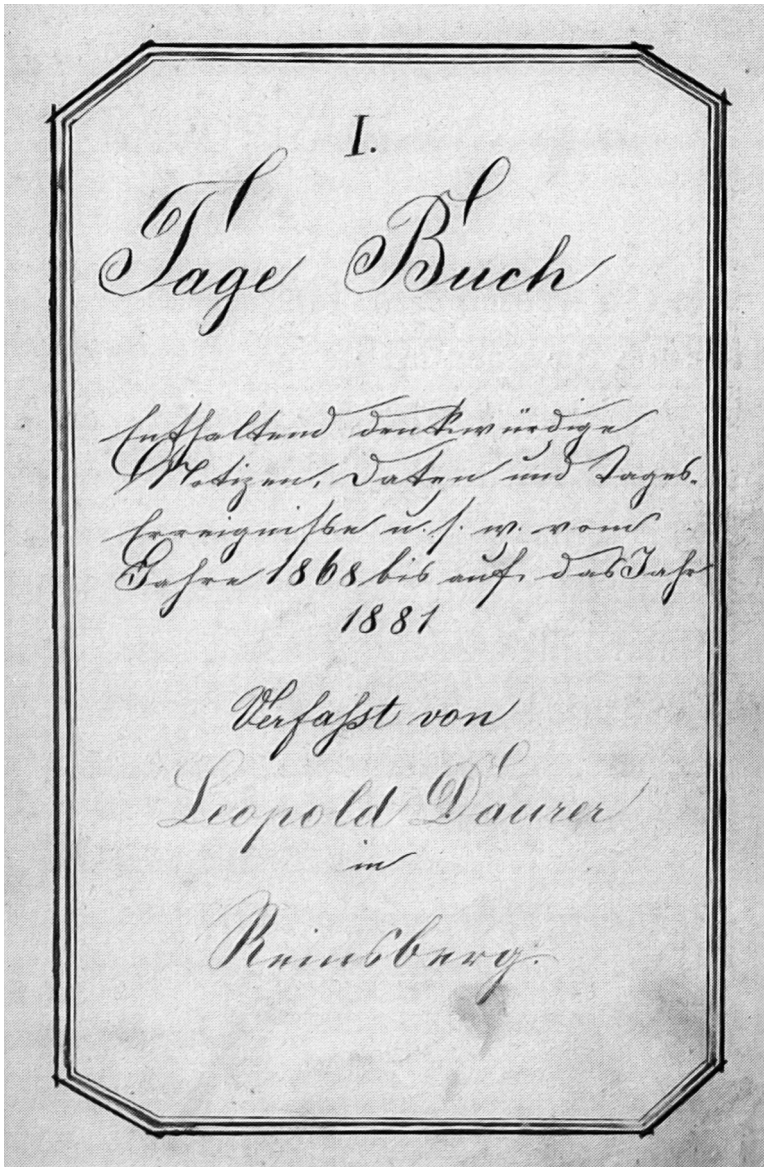 I.
Tage Buch
Enthaltend denkwürdige
Notizen, Daten und Tages-
Erreignisse u. s. w. vom
Jahre 1868 bis auf das Jahr
1881
Verfaſst von
Leopold Daurer
in
Reinsberg.